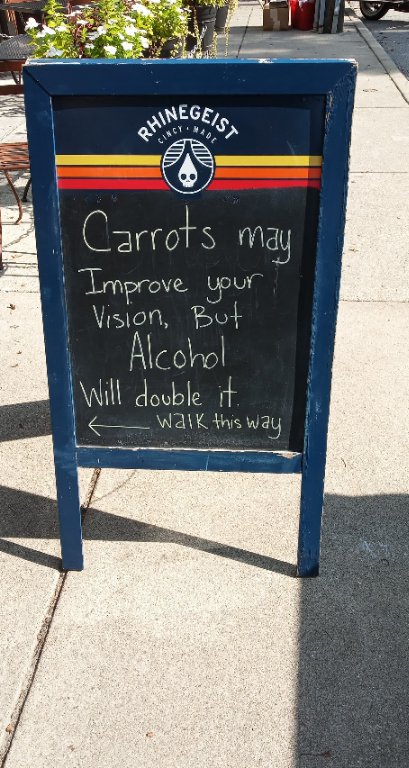 RHINEGEIST
CINCY · MADE
Carrots may
Improve your
Vision, But
Alcohol
Will double it.
← walk this way